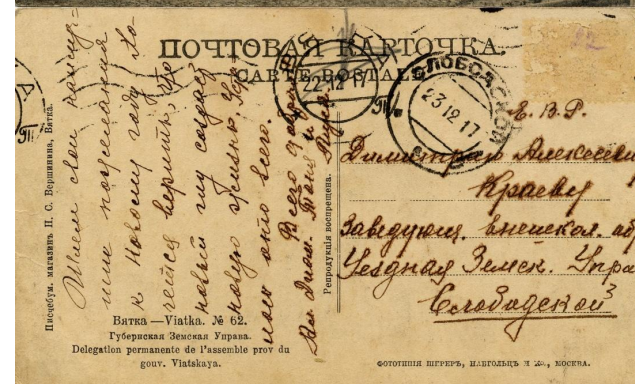 ПОЧТОВАЯ КАРТОЧКА.
CARTE POSTALE
22 12 17
СЛОБОДСКОЙ
23 12 17
Е. В. Р.
Димитрию Алексеевичу
Краеву
Заведующ. внешкол.
Уездная Земск. Упра
Слободской
Шлем свои наилуч-
шие пожелания
к Новому году. Хо-
чется верить, что
новый год создаст
новую жизнь,
Всего
Писчебум. магазинъ П. С. Вершинина, Вятка.
Репродукція воспрещена.
Вятка — Viatka. № 62.
Губернская Земская Управа.
Delegation permanente de l'assemble prov du
gouv. Viatskaya.
ФОТОТИПІЯ ШЕРЕРЪ, НАБГОЛЬЦЪ И Ко., МОСКВА.